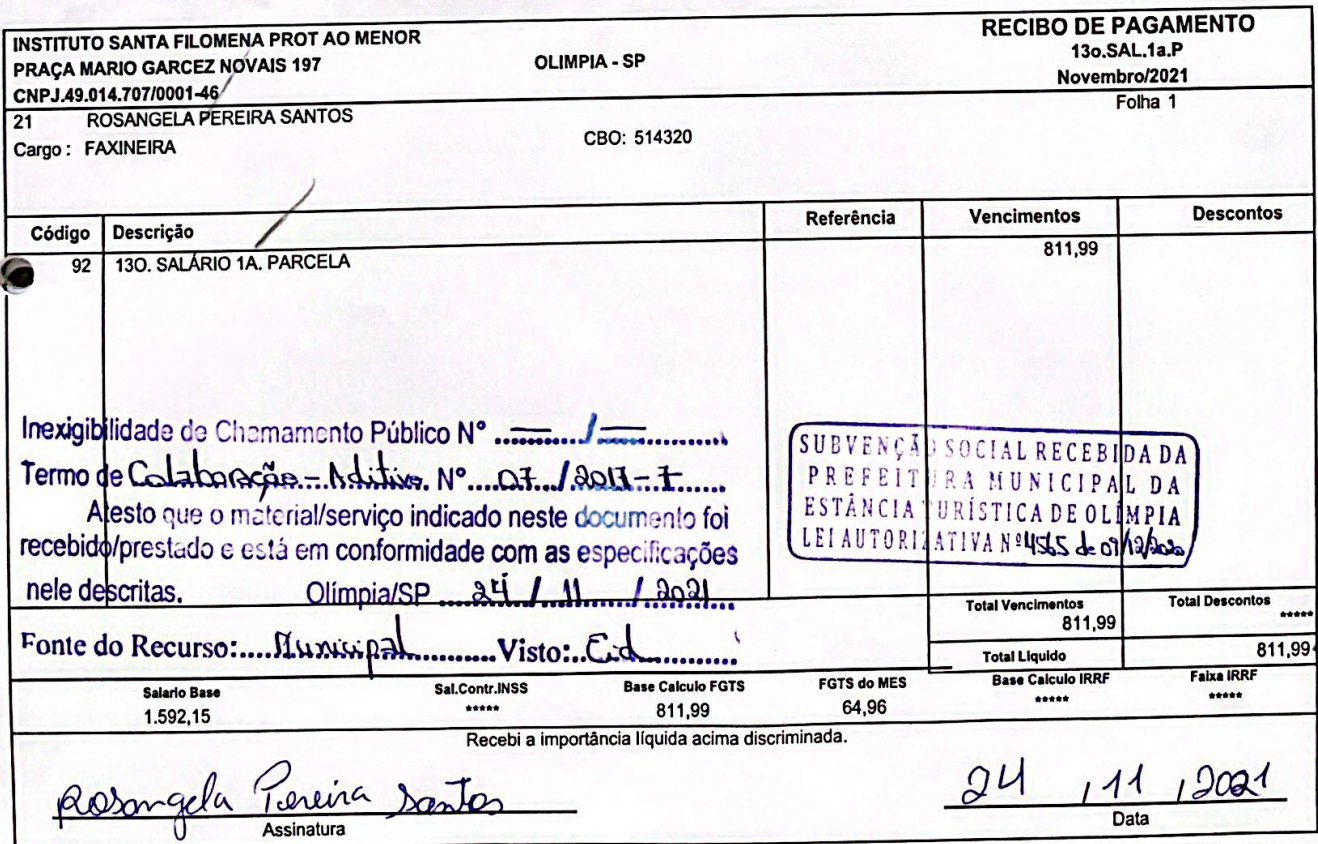 INSTITUTO SANTA FILOMENA PROT AO MENOR
PRAÇA MARIO GARCEZ NOVAIS 197
CNPJ.49.014.707/0001-46
OLIMPIA - SP
RECIBO DE PAGAMENTO
13o.SAL.1a.P
Novembro/2021
Folha 1
21 ROSANGELA PEREIRA SANTOS
Cargo : FAXINEIRA
CBO: 514320
Código Descrição Referência Vencimentos Descontos
92 13O. SALÁRIO 1A. PARCELA 811,99
Inexigibilidade de Chamamento Público Nº ...—.../...—...
Termo de Colaboração - Aditivo. Nº ....07.../2017-7......
Atesto que o material/serviço indicado neste documento foi
recebido/prestado e está em conformidade com as especificações
nele descritas. Olímpia/SP ....24../..11......../.2021..
SUBVENÇÃO SOCIAL RECEBIDA DA
PREFEITURA MUNICIPAL DA
ESTÂNCIA TURÍSTICA DE OLÍMPIA
LEI AUTORIZATIVA Nº 4565 de 09/12/2020
Fonte do Recurso:....Municipal............Visto:..Cid............
Total Vencimentos
811,99
Total Descontos
*****
Total Liquido
811,99
Salario Base Sal.Contr.INSS Base Calculo FGTS FGTS do MES Base Calculo IRRF Faixa IRRF
1.592,15 ***** 811,99 64,96 ***** *****
Recebi a importância líquida acima discriminada.
Rosangela Pereira Santos
Assinatura
24 / 11 / 2021
Data